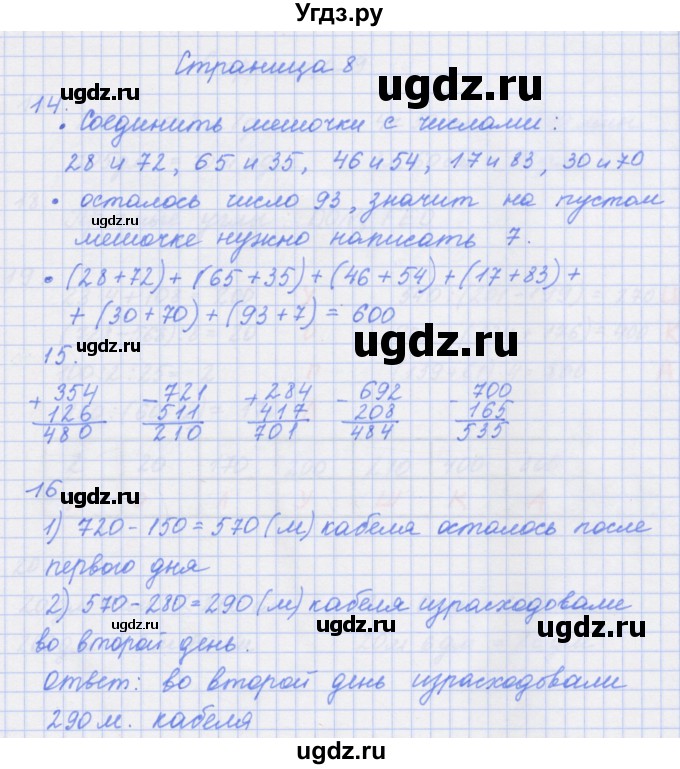 Угдз.ру
Страница 8
14.
• Соединить мешочки с числами:
28 и 72, 65 и 35, 46 и 54, 17 и 83, 30 и 70
• осталось число 93, значит на пустом
мешочке нужно написать 7.
• (28+72) + (65+35) + (46+54) + (17+83) +
+ (30+70) + (93+7) = 600
15.
+354 −721 +284 −692 −700
126 511 417 208 165
480 210 701 484 535
16
1) 720 - 150 = 570 (м) кабеля осталось после
первого дня
2) 570 - 280 = 290 (м) кабеля израсходовали
во второй день.
Ответ: во второй день израсходовали
290 м. кабеля
ugdz.ru
ugdz.ru
ugdz.ru
ugdz.ru
ugdz.ru
ugdz.ru
ugdz.ru
ugdz.ru
ugdz.ru
ugdz.ru
ugdz.ru
ugdz.ru
ugdz.ru